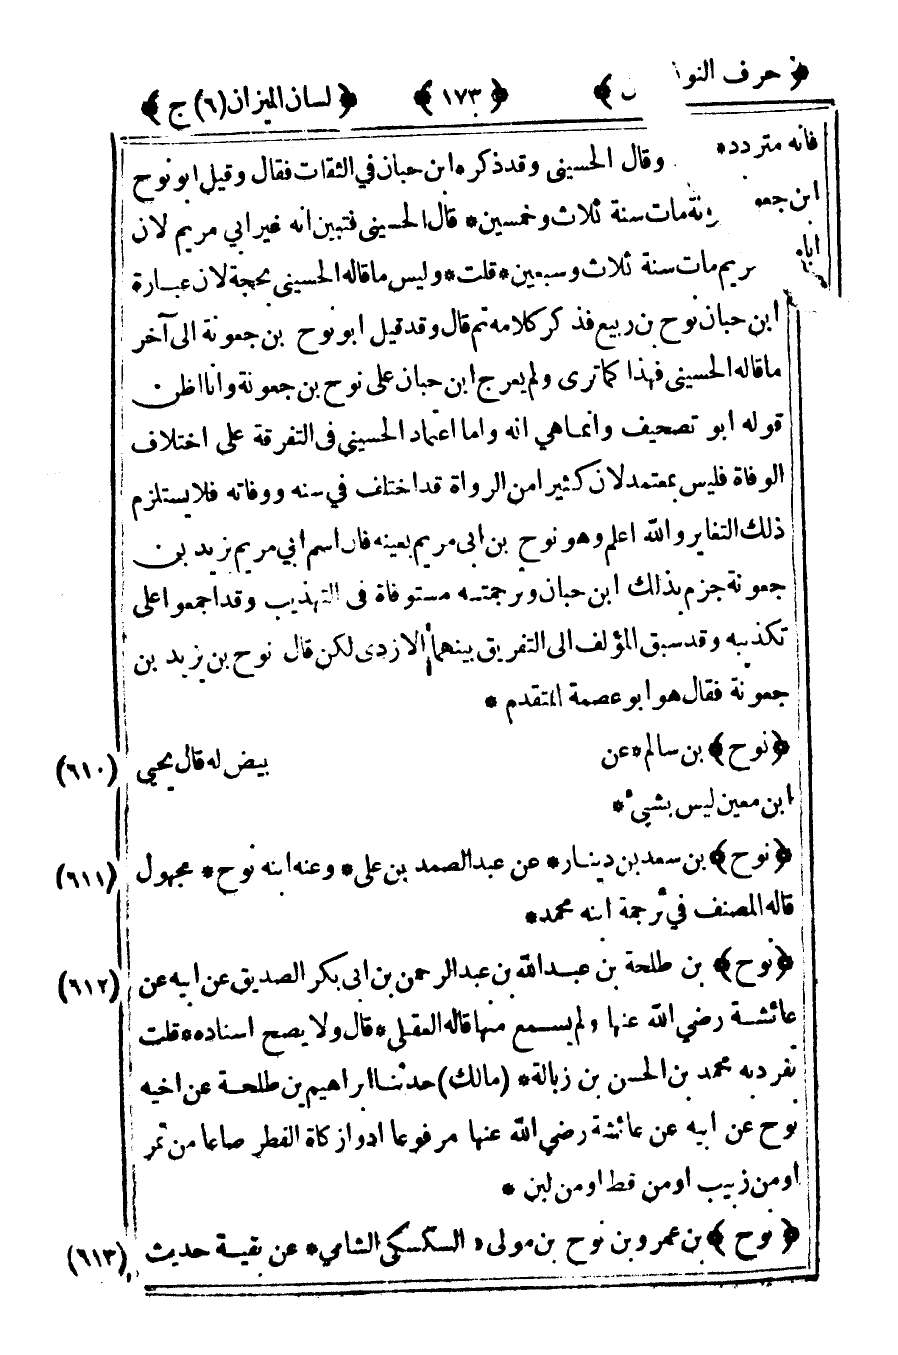 ﴿ حرف النو ﴾ ﴿ ١٧٣ ﴾ ﴿ لسان الميزان (٦) ج ﴾
فانه متردد * وقال الحسينى وقد ذكره ابن حبان في الثقات فقال وقيل ابو نوح
ابن جعو ونة مات سنة ثلاث وخمسين * قال الحسينى فتبين انه غير ابي مريم لان
ابا مريم مات سنة ثلاث وسبعين * قلت * وليس ما قاله الحسينى بحجة لان عبارة
ابن حبان نوح بن ربيع فذكر كلامه ثم قال وقد قيل ابو نوح بن جعونة الى آخر
ما قاله الحسينى فهذا كما ترى ولم يعرج ابن حبان على نوح بن جعونة وانا اظن
قوله ابو تصحيف وانما هي انه واما اعتماد الحسيني فى التفرقة على اختلاف
الوفاة فليس بمعتمد لان كثيرا من الرواة قد اختلف في سنه ووفاته فلا يستلزم
ذلك التغاير والله اعلم وهو نوح بن ابى مريم بعينه فان اسم ابي مريم يزيد بن
جعونة جزم بذلك ابن حبان وترجمته مستوفاة فى التهذيب وقد اجمعوا على
تكذيبه وقد سبق المؤلف الى التفريق بينهما الازدى لكن قال نوح بن يزيد بن
جعونة فقال هو ابو عصمة المتقدم *
﴿ نوح ﴾ بن سالم * عن بيض له قال يحيى (٦١٠)
ابن معين ليس بشيء *
﴿ نوح ﴾ بن سعد بن دينار * عن عبد الصمد بن على * وعنه ابنه نوح * مجهول (٦١١)
قاله المصنف في ترجمة ابنه محمد *
﴿ نوح ﴾ بن طلحة بن عبد الله بن عبد الرحمن بن ابى بكر الصديق عن ابيه عن (٦١٢)
عائشة رضي الله عنها ولم يسمع منها قاله العقيلى * قال ولا يصح اسناده * قلت
تفرد به محمد بن الحسن بن زبالة * (مالك) حدثنا ابراهيم بن طلحة عن اخيه
نوح عن ابيه عن عائشة رضي الله عنها مرفوعا ادوا زكاة الفطر صاعا من تمر
او من زبيب او من قط او من لبن *
﴿ نوح ﴾ بن عمرو بن نوح بن مولى * السكسكي الشامي * عن بقية حديث (٦١٣)